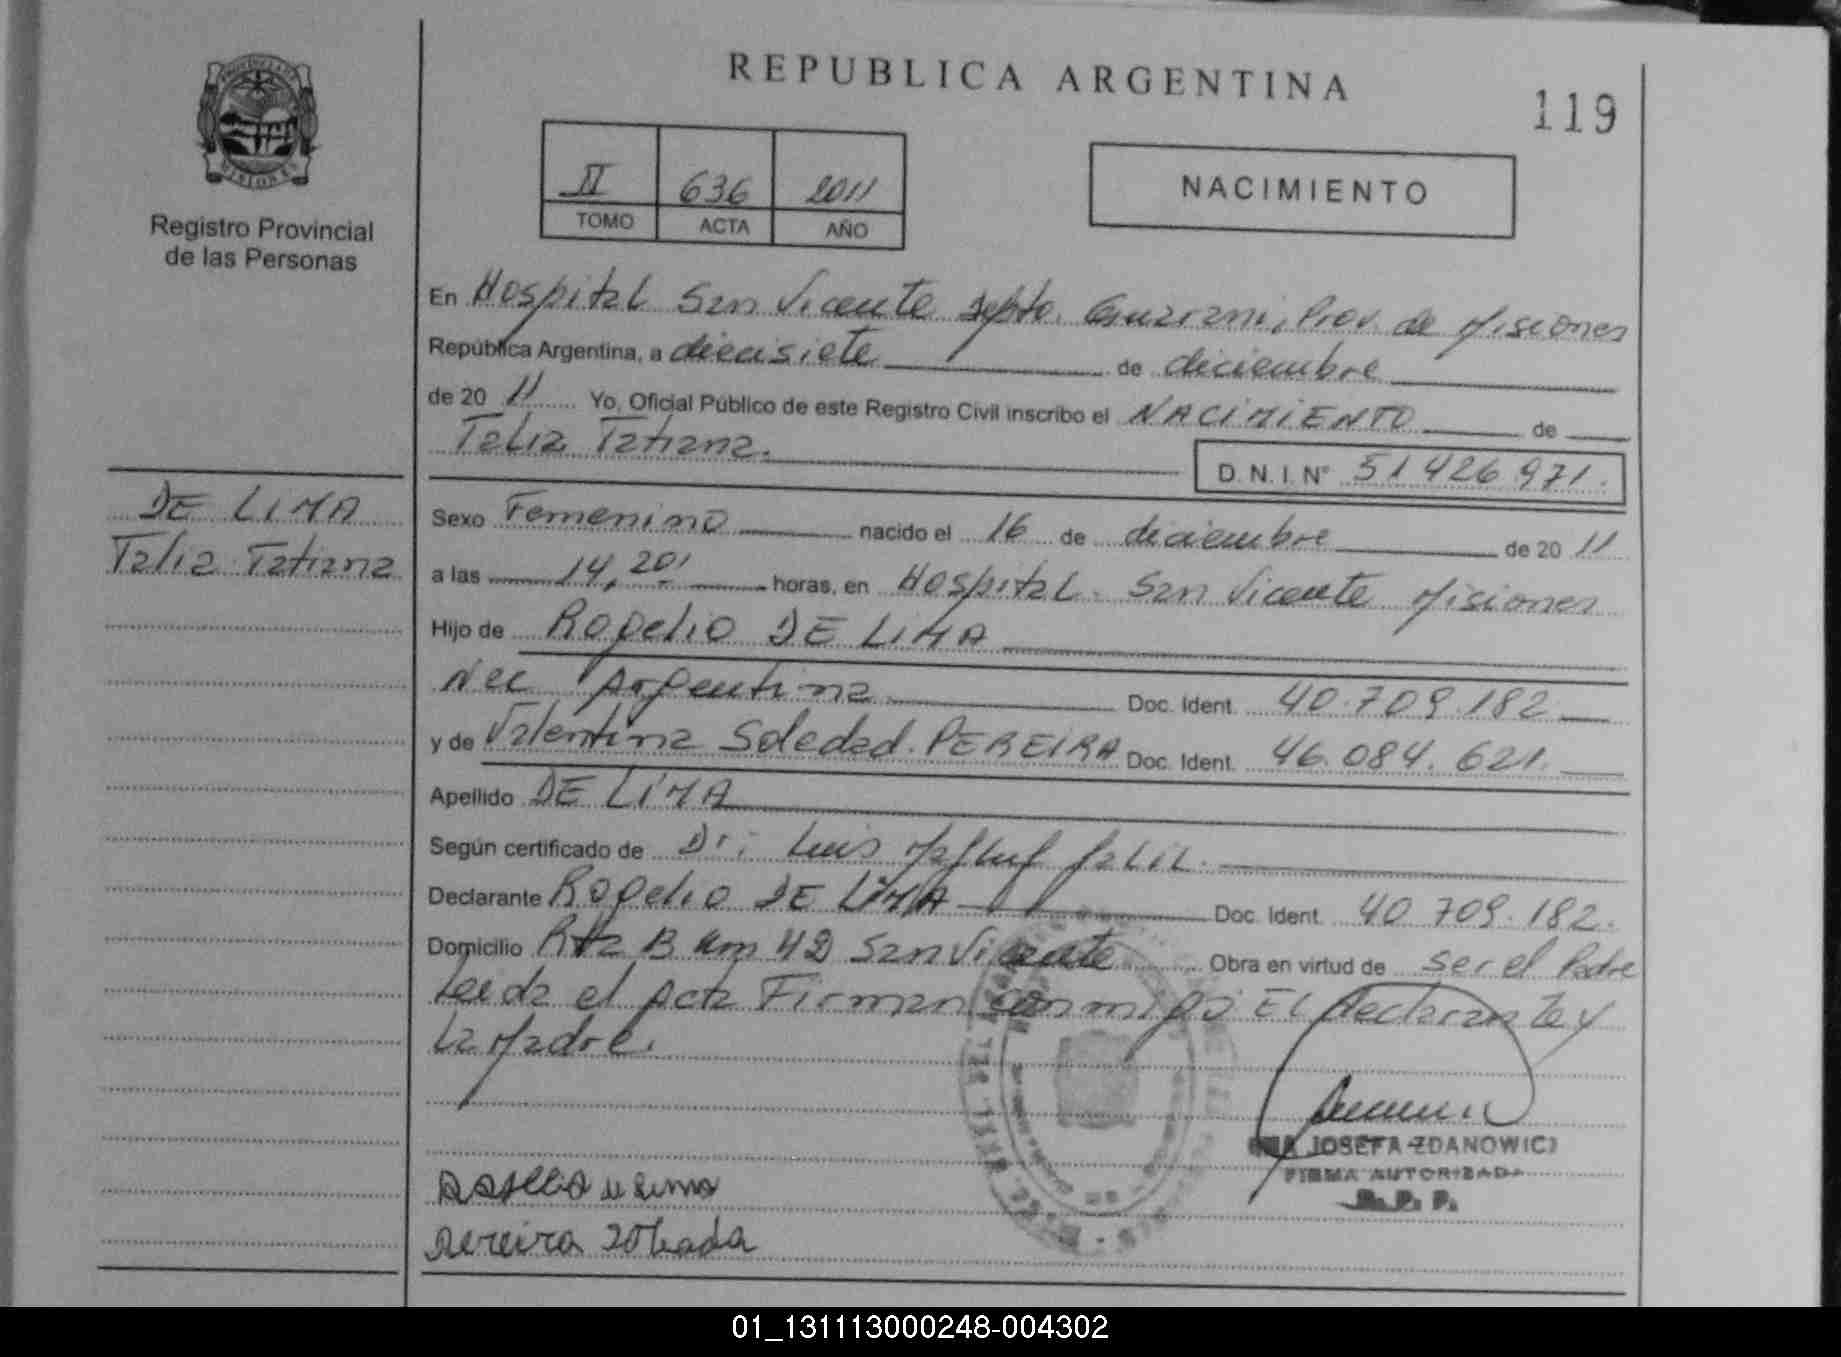 REPUBLICA ARGENTINA
119
PROVINCIA DE
MISIONES
Registro Provincial
de las Personas
II 636 2011
TOMO ACTA AÑO
NACIMIENTO
En Hospital San Vicente Dpto. Guarani, Prov. de Misiones
República Argentina, a diecisiete de diciembre
de 20 11 Yo, Oficial Público de este Registro Civil inscribo el NACIMIENTO de
Talia Tatiana.
D. N. I. N° 51 426 971.
DE LIMA
Talia Tatiana
Sexo Femenino nacido el 16 de diciembre de 20 11
a las 14,20' horas, en Hospital San Vicente Misiones
Hijo de Rogelio DE LIMA
Nac Argentina Doc. Ident. 40.709.182
y de Valentina Soledad PEREIRA Doc. Ident. 46.084.621.
Apellido DE LIMA
Según certificado de Dr: Luis
Declarante Rogelio DE LIMA Doc. Ident. 40 709.182.
Domicilio Rta 13 Km 42 San Vicente Obra en virtud de ser el Padre
Leida el Acta Firman conmigo El declarante y
La Madre.
JOSEFA ZDANOWICZ
FIRMA AUTORIZADA
R. P. P.
Pereira
01_131113000248-004302